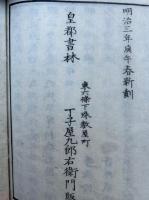 明治三年庚午春新刻
皇都書林
東六條下珠数屋町
丁子屋九郎右衛門版